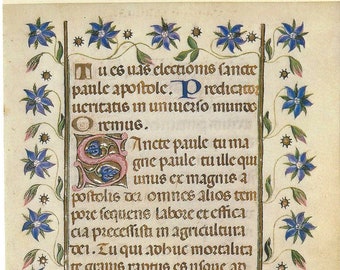 Tu es uas electionis sancte
paule apostole. Predicator
ueritatis in uniuerso mundo
Oremus.
Sancte paule tu ma
gne paule tu ille qui
unus ex magnis a
postolis dei omnes alios tem
pore sequens labore et effica
cia precessisti in agricultura
dei. Tu qui adhuc mortalita
te grauis raptus es usque ad